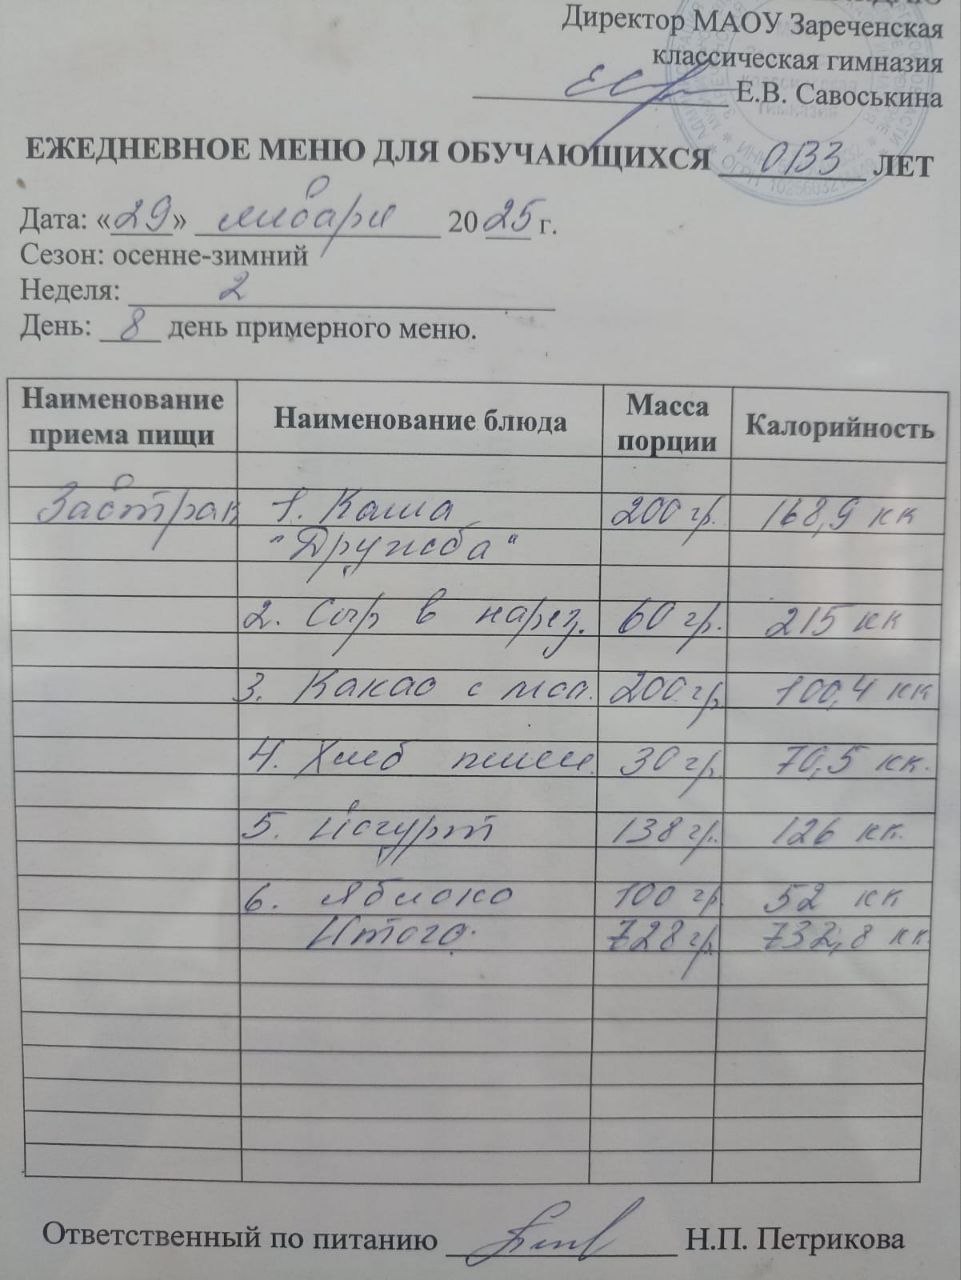 Директор МАОУ Зареченская
классическая гимназия
Е.В. Савоськина
ЕЖЕДНЕВНОЕ МЕНЮ ДЛЯ ОБУЧАЮЩИХСЯ ОВЗ ЛЕТ
Дата: «29» января 2025 г.
Сезон: осенне-зимний
Неделя: 2
День: 8 день примерного меню.
Наименование приема пищи Наименование блюда Масса порции Калорийность
Завтрак 1. Каша 200 гр. 168,9 кк
"Дружба"
2. Сыр в нарез. 60 гр. 215 кк
3. Какао с мол. 200 гр. 100,4 кк
4. Хлеб пшен. 30 гр. 70,5 кк.
5. Йогурт 138 гр. 126 кк.
6. Яблоко 100 гр 52 кк
Итого. 728 гр. 732,8 кк.
Ответственный по питанию Н.П. Петрикова